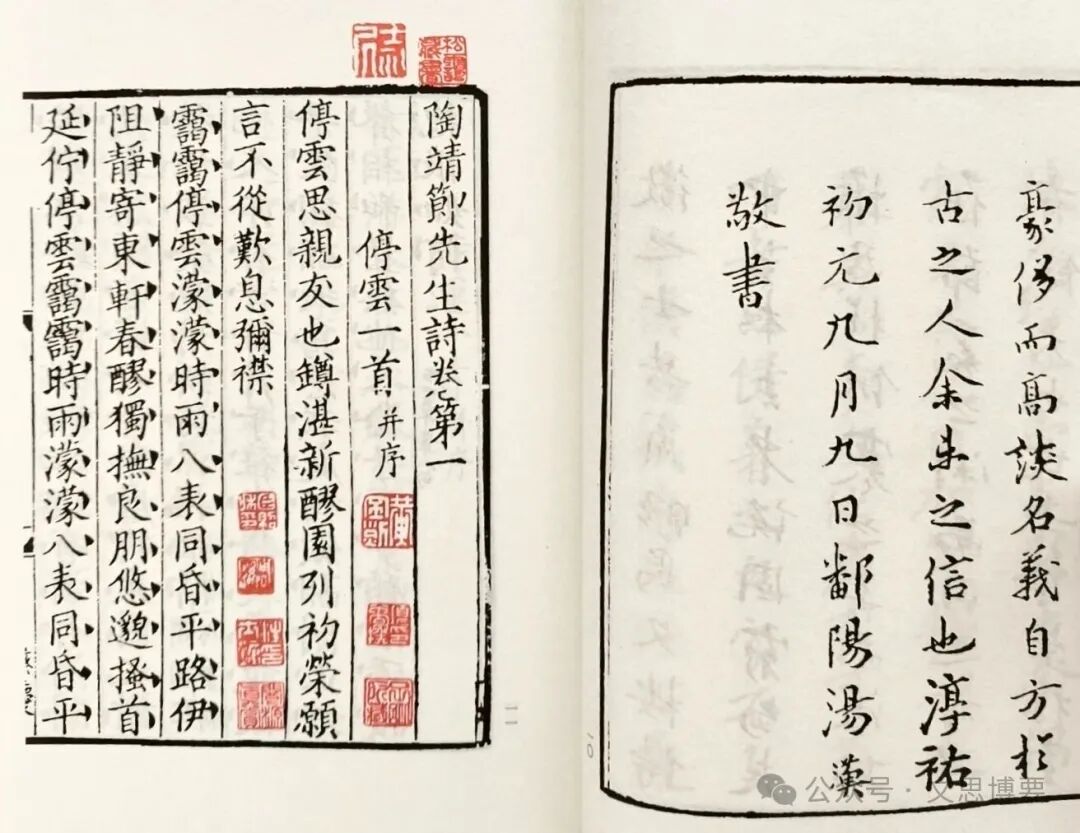 豪侈而高談名義自方於
古之人余未之信也淳祐
初元九月九日鄱陽湯漢
敬書
松靄藏書
陶靖節先生詩卷第一
停雲一首并序
停雲思親友也罇湛新醪園列初榮願
言不從歎息彌襟
靄靄停雲濛濛時雨八表同昏平路伊
阻靜寄東軒春醪獨撫良朋悠邈搔首
延佇停雲靄靄時雨濛濛八表同昏平
公众号 · 文思博要